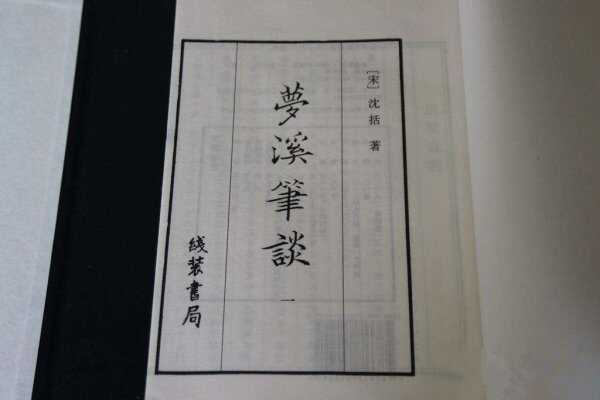 [宋]沈括 著
夢溪筆談
一
线装書局